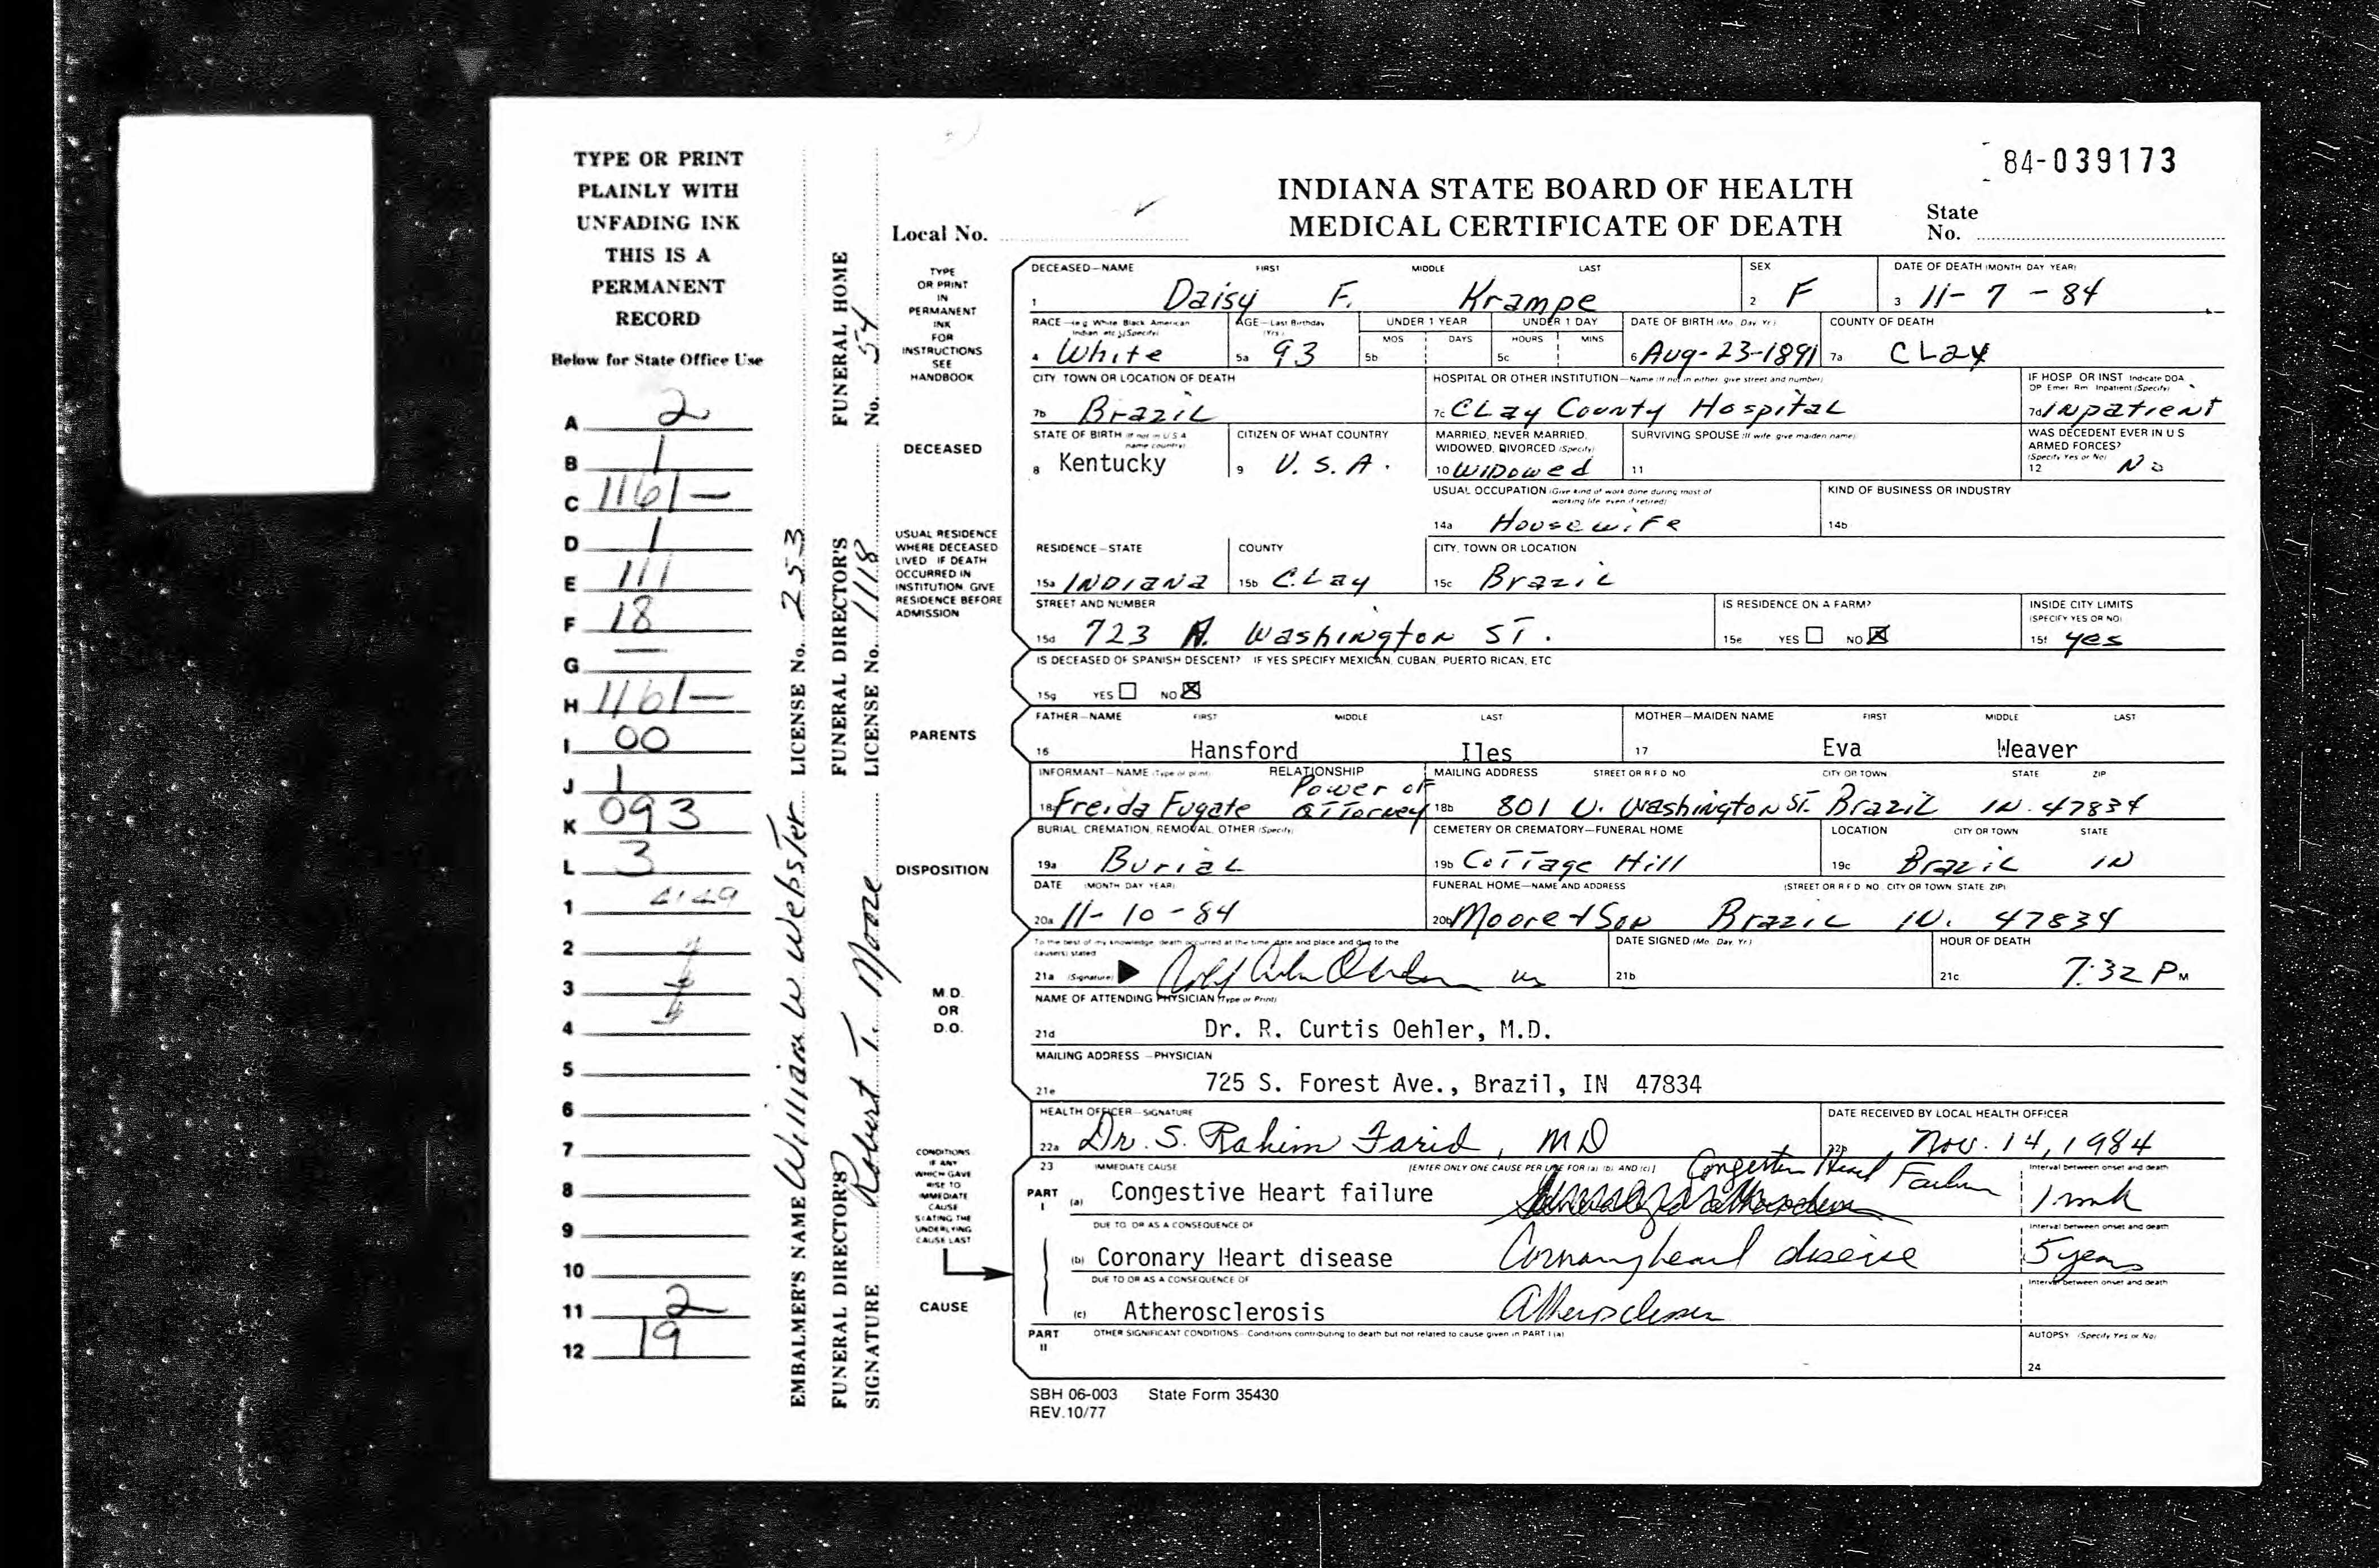 84-039173
TYPE OR PRINT
PLAINLY WITH
UNFADING INK
THIS IS A
PERMANENT
RECORD
Below for State Office Use
A 2
B 1
C 1161-
D 1
E 111
F 18
G —
H 1161-
I 00
J 1
K 093
L 3
1 4149
2
3
4
5
6
7
8
9
10
11 2
12 19
EMBALMER'S NAME William W Webster LICENSE No. 253
FUNERAL DIRECTOR'S SIGNATURE Robert T. Moore
FUNERAL DIRECTOR'S LICENSE No. 1118
FUNERAL HOME No. 54
INDIANA STATE BOARD OF HEALTH
MEDICAL CERTIFICATE OF DEATH
Local No.
State No.
TYPE
OR PRINT
IN
PERMANENT
INK
FOR
INSTRUCTIONS
SEE
HANDBOOK
DECEASED—NAME FIRST MIDDLE LAST SEX DATE OF DEATH (MONTH DAY YEAR)
1 Daisy F. Krampe 2 F 3 11-7-84
RACE—(e.g. White Black American Indian etc.) (Specify) AGE—Last Birthday (Yrs.) UNDER 1 YEAR UNDER 1 DAY DATE OF BIRTH (Mo. Day Yr.) COUNTY OF DEATH
MOS DAYS HOURS MINS
4 White 5a 93 5b 5c 6 Aug-23-1891 7a CLay
CITY, TOWN OR LOCATION OF DEATH HOSPITAL OR OTHER INSTITUTION—Name (If not in either, give street and number) IF HOSP OR INST Indicate DOA, OP Emer Rm Inpatient (Specify)
7b Brazil 7c CLay County Hospital 7d Inpatient
DECEASED
STATE OF BIRTH (If not in U S A name country) CITIZEN OF WHAT COUNTRY MARRIED, NEVER MARRIED, WIDOWED, DIVORCED (Specify) SURVIVING SPOUSE (If wife give maiden name) WAS DECEDENT EVER IN U S ARMED FORCES? (Specify Yes or No)
8 Kentucky 9 U.S.A. 10 Widowed 11 12 No
USUAL OCCUPATION (Give kind of work done during most of working life even if retired) KIND OF BUSINESS OR INDUSTRY
14a Housewife 14b
USUAL RESIDENCE
WHERE DECEASED
LIVED IF DEATH
OCCURRED IN
INSTITUTION GIVE
RESIDENCE BEFORE
ADMISSION
RESIDENCE—STATE COUNTY CITY, TOWN OR LOCATION
15a Indiana 15b CLay 15c Brazil
STREET AND NUMBER IS RESIDENCE ON A FARM? INSIDE CITY LIMITS (SPECIFY YES OR NO)
15d 723 N. Washington ST. 15e YES NO X 15f yes
IS DECEASED OF SPANISH DESCENT? IF YES SPECIFY MEXICAN, CUBAN, PUERTO RICAN, ETC
15g YES NO X
PARENTS
FATHER—NAME FIRST MIDDLE LAST MOTHER—MAIDEN NAME FIRST MIDDLE LAST
16 Hansford Iles 17 Eva Weaver
INFORMANT—NAME (Type or print) RELATIONSHIP MAILING ADDRESS STREET OR R F D NO CITY OR TOWN STATE ZIP
18a Freida Fugate Power of Attorney 18b 801 N. Washington ST. Brazil IN. 47834
DISPOSITION
BURIAL, CREMATION, REMOVAL, OTHER (Specify) CEMETERY OR CREMATORY—FUNERAL HOME LOCATION CITY OR TOWN STATE
19a Burial 19b Cottage Hill 19c Brazil IN
DATE (MONTH DAY YEAR) FUNERAL HOME—NAME AND ADDRESS (STREET OR R F D NO CITY OR TOWN STATE ZIP)
20a 11-10-84 20b Moore + Son Brazil IN. 47834
M.D.
OR
D.O.
To the best of my knowledge, death occurred at the time, date and place and due to the cause(s) stated DATE SIGNED (Mo. Day Yr.) HOUR OF DEATH
21a (Signature) 21b 21c 7:32 P M
NAME OF ATTENDING PHYSICIAN (Type or Print)
21d Dr. R. Curtis Oehler, M.D.
MAILING ADDRESS—PHYSICIAN
21e 725 S. Forest Ave., Brazil, IN 47834
HEALTH OFFICER—SIGNATURE DATE RECEIVED BY LOCAL HEALTH OFFICER
22a Dr. S. Rahim Farid, MD 22b Nov. 14, 1984
CONDITIONS
IF ANY
WHICH GAVE
RISE TO
IMMEDIATE
CAUSE
STATING THE
UNDERLYING
CAUSE LAST
CAUSE
23 IMMEDIATE CAUSE [ENTER ONLY ONE CAUSE PER LINE FOR (a) (b) AND (c)] Interval between onset and death
PART I (a) Congestive Heart failure Congestive Heart Failure 1 wk
DUE TO OR AS A CONSEQUENCE OF Interval between onset and death
(b) Coronary Heart disease Coronary heart disease 5 years
DUE TO OR AS A CONSEQUENCE OF Interval between onset and death
(c) Atherosclerosis Atherosclerosis
PART II OTHER SIGNIFICANT CONDITIONS—Conditions contributing to death but not related to cause given in PART I (a) AUTOPSY (Specify Yes or No)
24
SBH 06-003 State Form 35430
REV.10/77